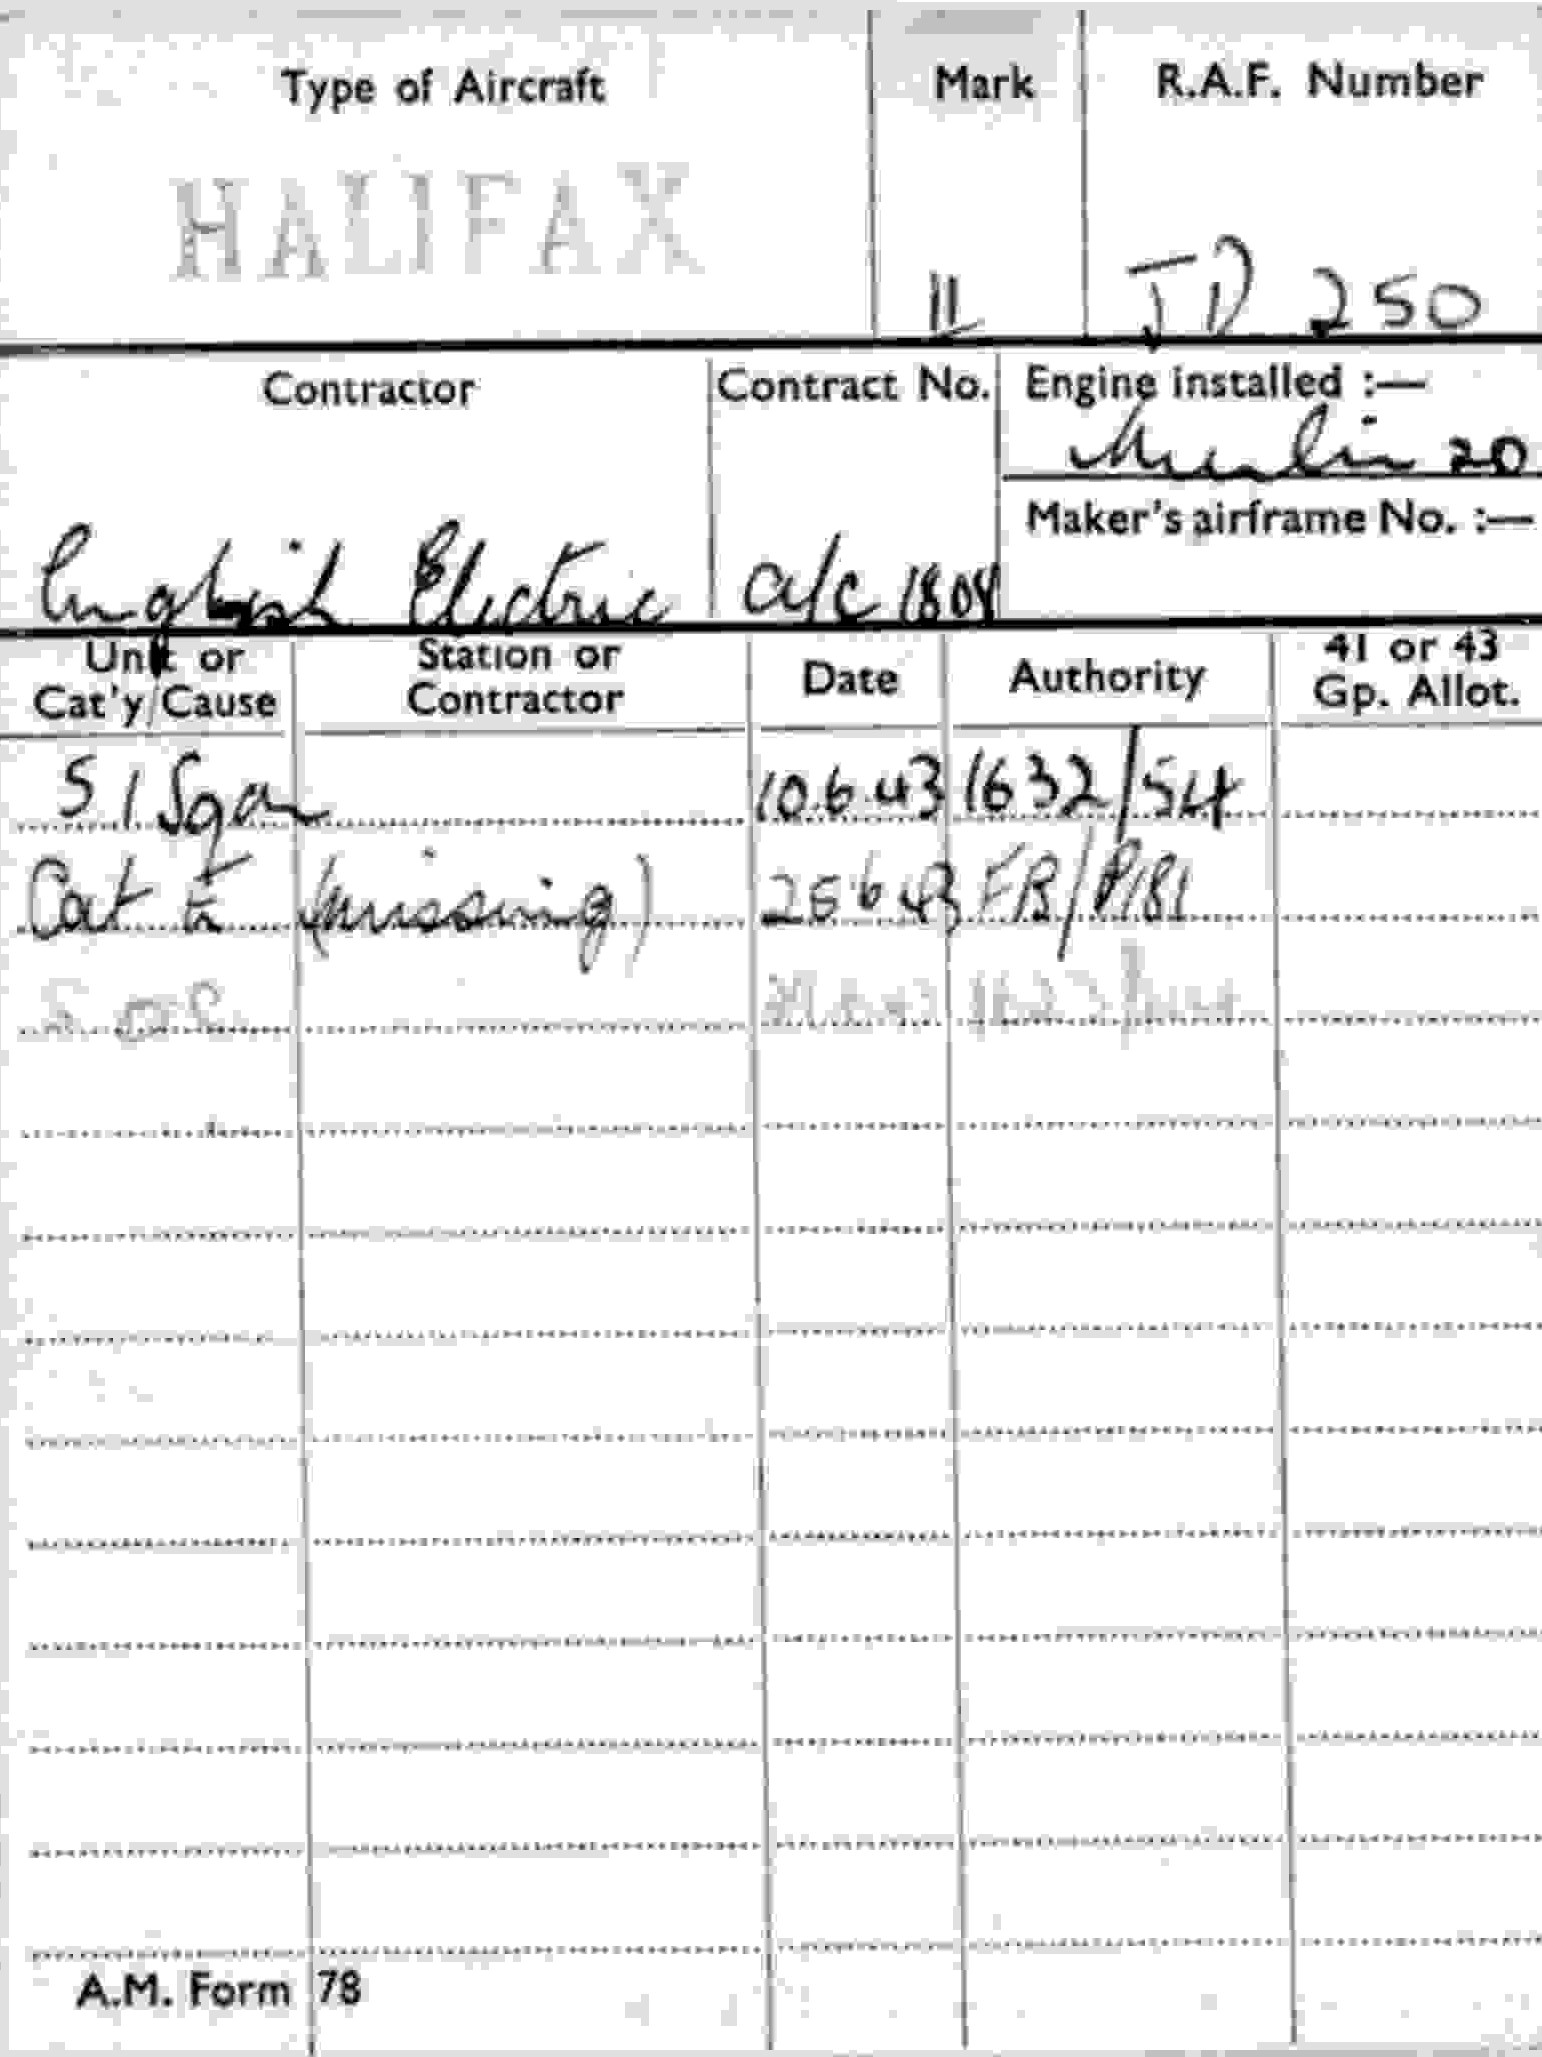 Type of Aircraft Mark R.A.F. Number
HALIFAX II JD 250
Contractor Contract No. Engine installed :—
Merlin 20
Maker's airframe No. :—
English Electric a/c 1808
Unit or Cat'y/Cause Station or Contractor Date Authority 41 or 43 Gp. Allot.
51 Sqdn 10.6.43 1632/54
Cat E (missing) 25.6.43 FB/P181
S.O.C.
A.M. Form 78